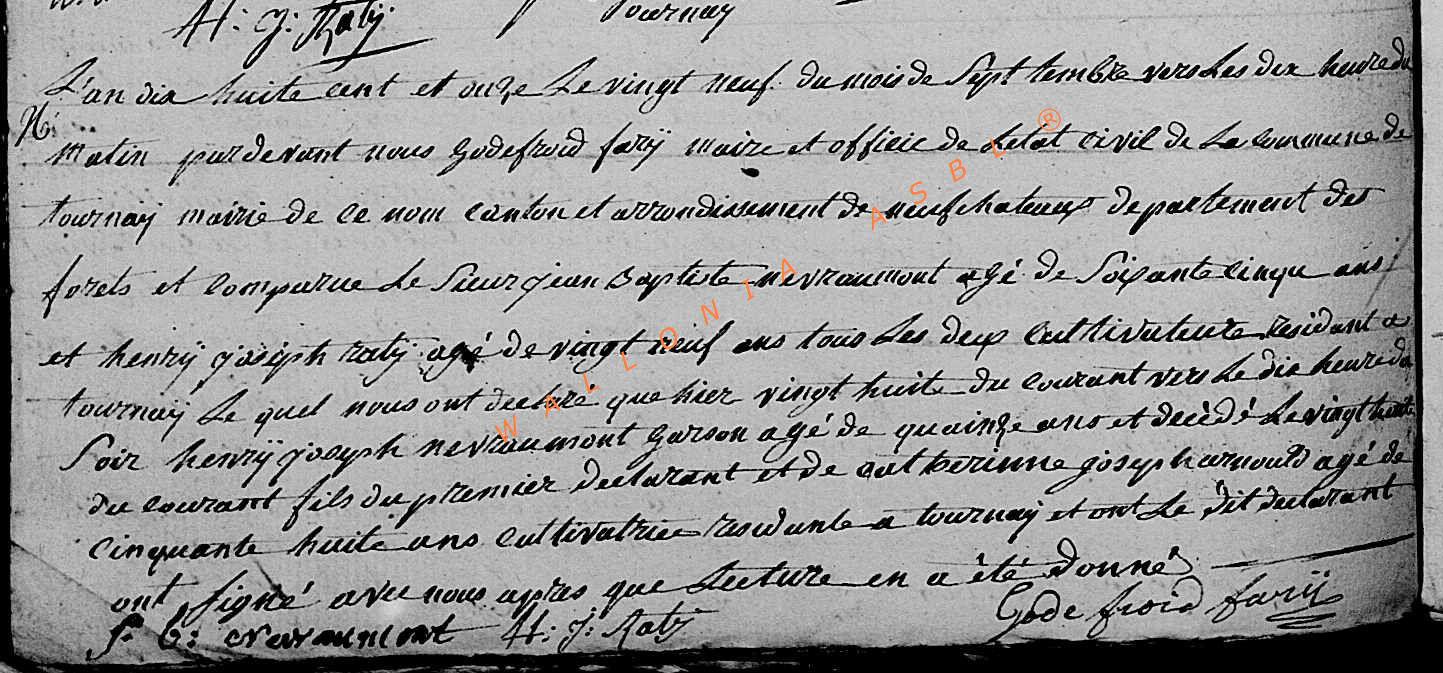 H: J: Raty
Tournay
L'an dix huite cent et onze Le vingt neuf du mois de Sept tembre vers Les dix heure du
N:
matin par devant nous Godefroid fary maire et officie de Létat Civil de La commune de
tournay mairie de ce nom canton et arrondissement de neufchateaux departement des
forets et comparue Le Sieur jean Baptiste nevraumont agé de Soixante cinqu ans
et henry joseph raty agé de vingt neuf ans tous Les deux cultivateure residant a
tournay Le quel nous ont declaré que hier vingt huite du courant vers Le dix heure du
Soir henry joseph nevraumont garson agé de quainze ans et decédé Le vingt huite
du courant fils du premier declarant et de catherinne joseph arnould agé de
cinquante huite ans cultivatrice residante a tournay et ont Le dit declarant
ont signé avec nous apres que Lecture en a été donné
J: b: nevraumont H: J: Raty Gode froid fary
WALLONIA ASBL ®